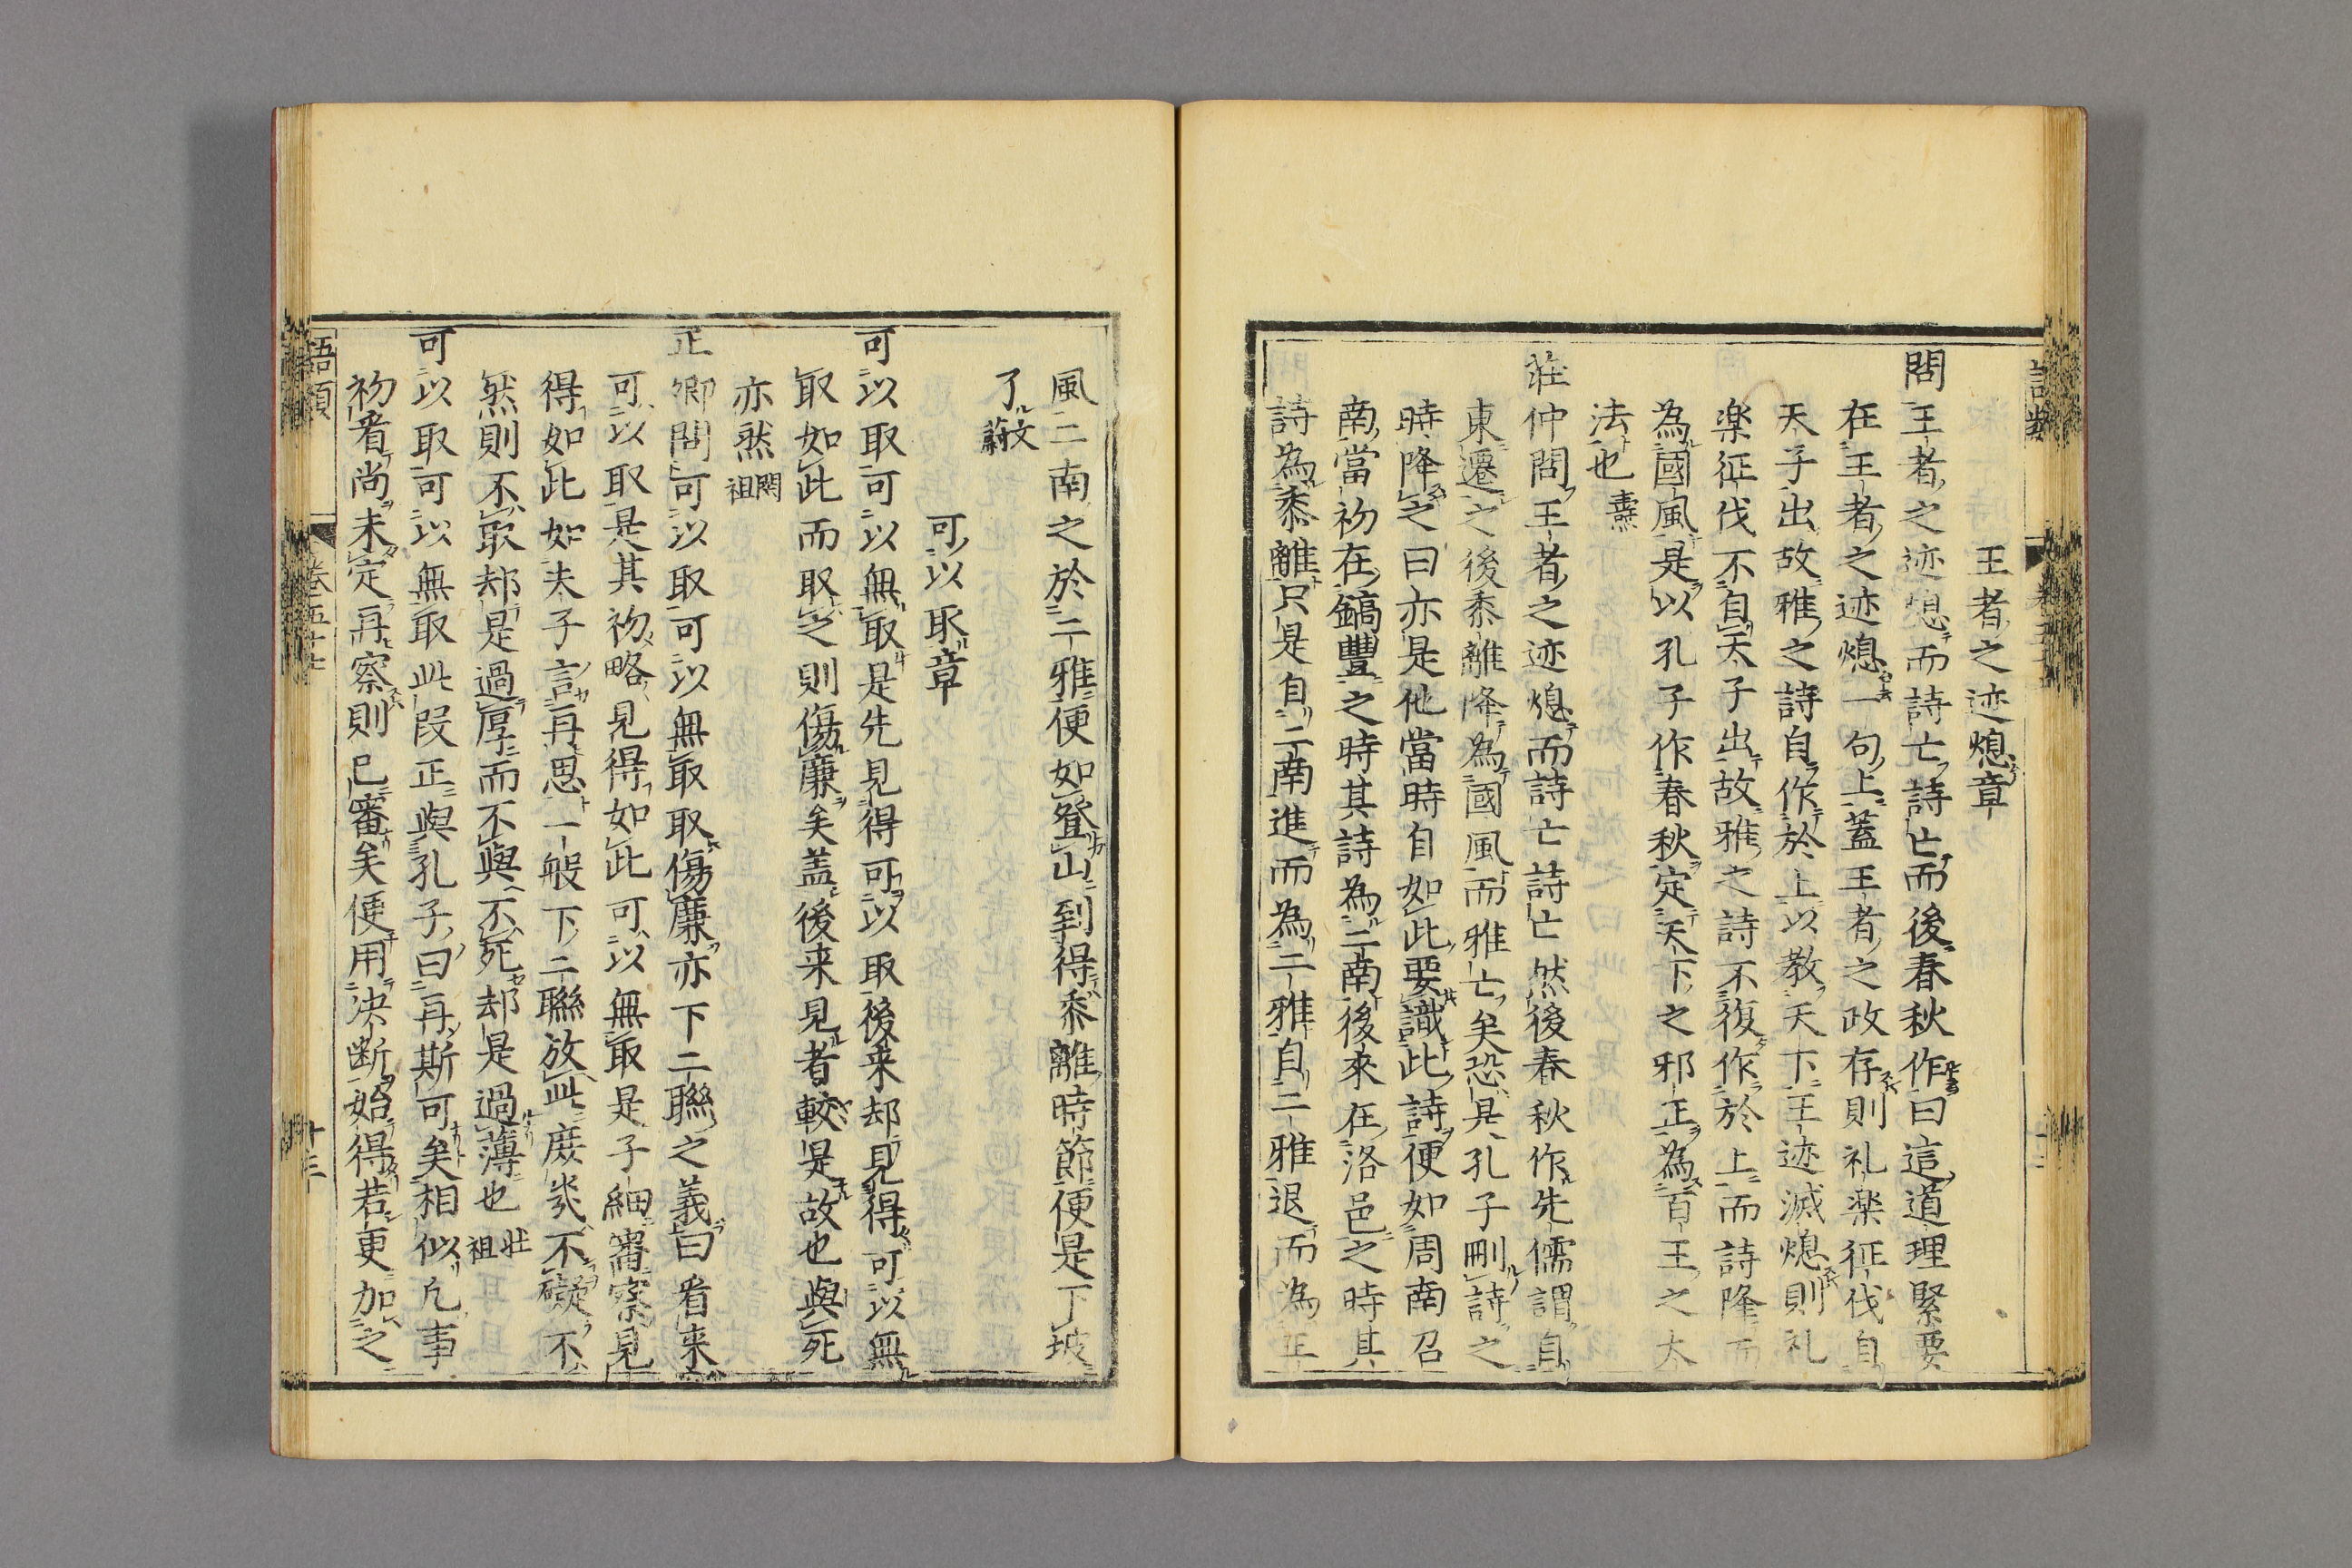 王者之迹熄章
問王者之迹熄而詩亡詩亡而後春秋作曰這道理緊要
在王者之迹熄一句上蓋王者之政存則礼楽征伐自
天子出故雅之詩自作於上以教天下王迹滅熄則礼
楽征伐不自天子出故雅之詩不復作於上而詩降而
為國風是以孔子作春秋定天下之邪正為百王之大
法也 壽
莊仲問王者之迹熄而詩亡詩亡然後春秋作先儒謂自
東遷之後黍離降為國風而雅亡矣恐是孔子刪詩之
時降之曰亦是他當時自如此要識此詩便如周南召
南當初在鎬豐之時其詩為二南後來在洛邑之時其
詩為黍離只是自二南進而為二雅自二雅退而為王
風二南之於二雅便如登山到得黍離時節便是下坡
了 文蔚
可以取章
可以取可以無取是先見得可以取後来却見得可以無
取如此而取之則傷廉矣盖後来見者較是故也與死
亦然 閎祖
正卿問可以取可以無取取傷廉亦下二聯之義曰看来
可以取是其初略見得如此可以無取是子細審察見
得如此如夫子言再思一般下二聯放此庶幾不礙不
然則不取却是過厚而不與不死却是過薄也 壮祖
可以取可以無取此段正與孔子曰再斯可矣相似凢事
初看尚未定再察則已審矣便用決断始得若更加之
語類 卷五十七 十三